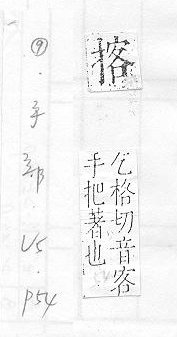 揢
乞格切音客
手把著也
⑨·手部·V5·P54